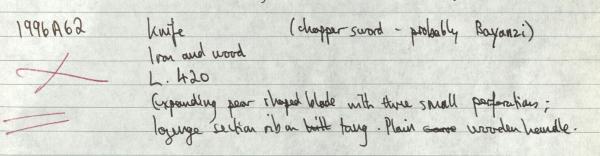 1996A62 Knife (chopper sword - probably Bayanzi)
Iron and wood
L. 420
Expanding pear shaped blade with three small perforations;
lozenge section rib on tang. Plain wooden handle.